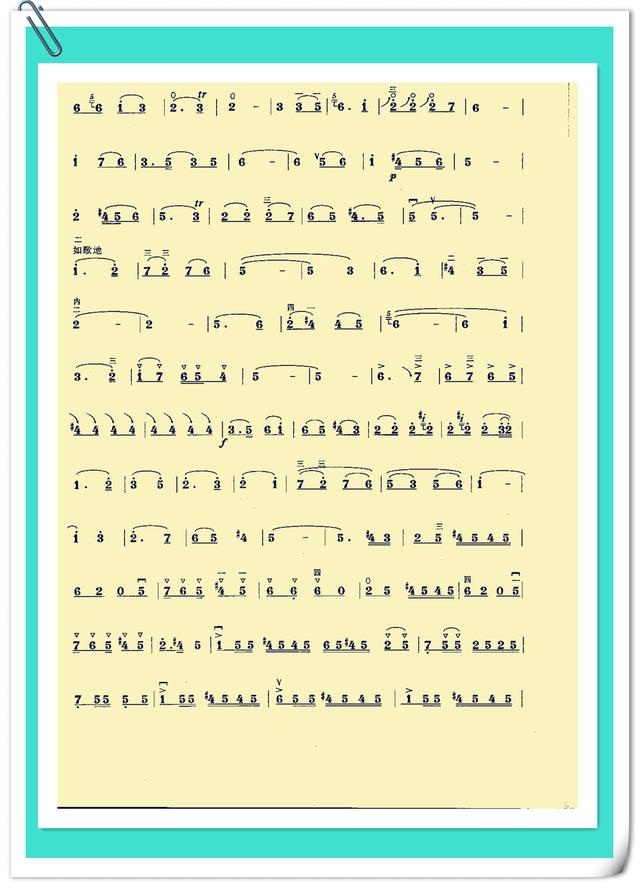 6 6 i 3 | 2. 3 tr | 2 - | 3 3 5 | 6. i | 2 2 2 7 | 6 - |
i 7 6 | 3. 5 3 5 | 6 - | 6 5 6 | i #4 5 6 | 5 - |
p
2 #4 5 6 | 5. 3 tr | 2 2 2 7 | 6 5 #4. 5 | 5 5. | 5 - |
二
如歌地
i. 2 | 7 2 7 6 | 5 - | 5 3 | 6. i | #4 3 5 |
内
二
2 - | 2 - | 5. 6 | 2 #4 4 5 | 6 - | 6 i |
3. 2 | i 7 6 5 4 | 5 - | 5 - | 6. 7 | 6 7 6 5 |
#4 4 4 4 | 4 4 4 4 | 3. 5 6 i | 6 5 #4 3 | 2 2 2 2 | 2 2 2 32 |
f
1. 2 | 3 5 | 2. 3 | 2 i | 7 2 7 6 | 5 3 5 6 | i - |
i 3 | 2. 7 | 6 5 #4 | 5 - | 5. #4 3 | 2 5 #4 5 4 5 |
6 2 0 5 | 7 6 5 #4 5 | 6 6 6 0 | 2 5 #4 5 4 5 | 6 2 0 5 |
7 6 5 #4 5 | 2. #4 5 | i 5 5 #4 5 4 5 6 5 #4 5 2 5 | 7 5 5 2 5 2 5 |
7 5 5 5 5 | i 5 5 #4 5 4 5 | 6 5 5 #4 5 4 5 | i 5 5 #4 5 4 5 |